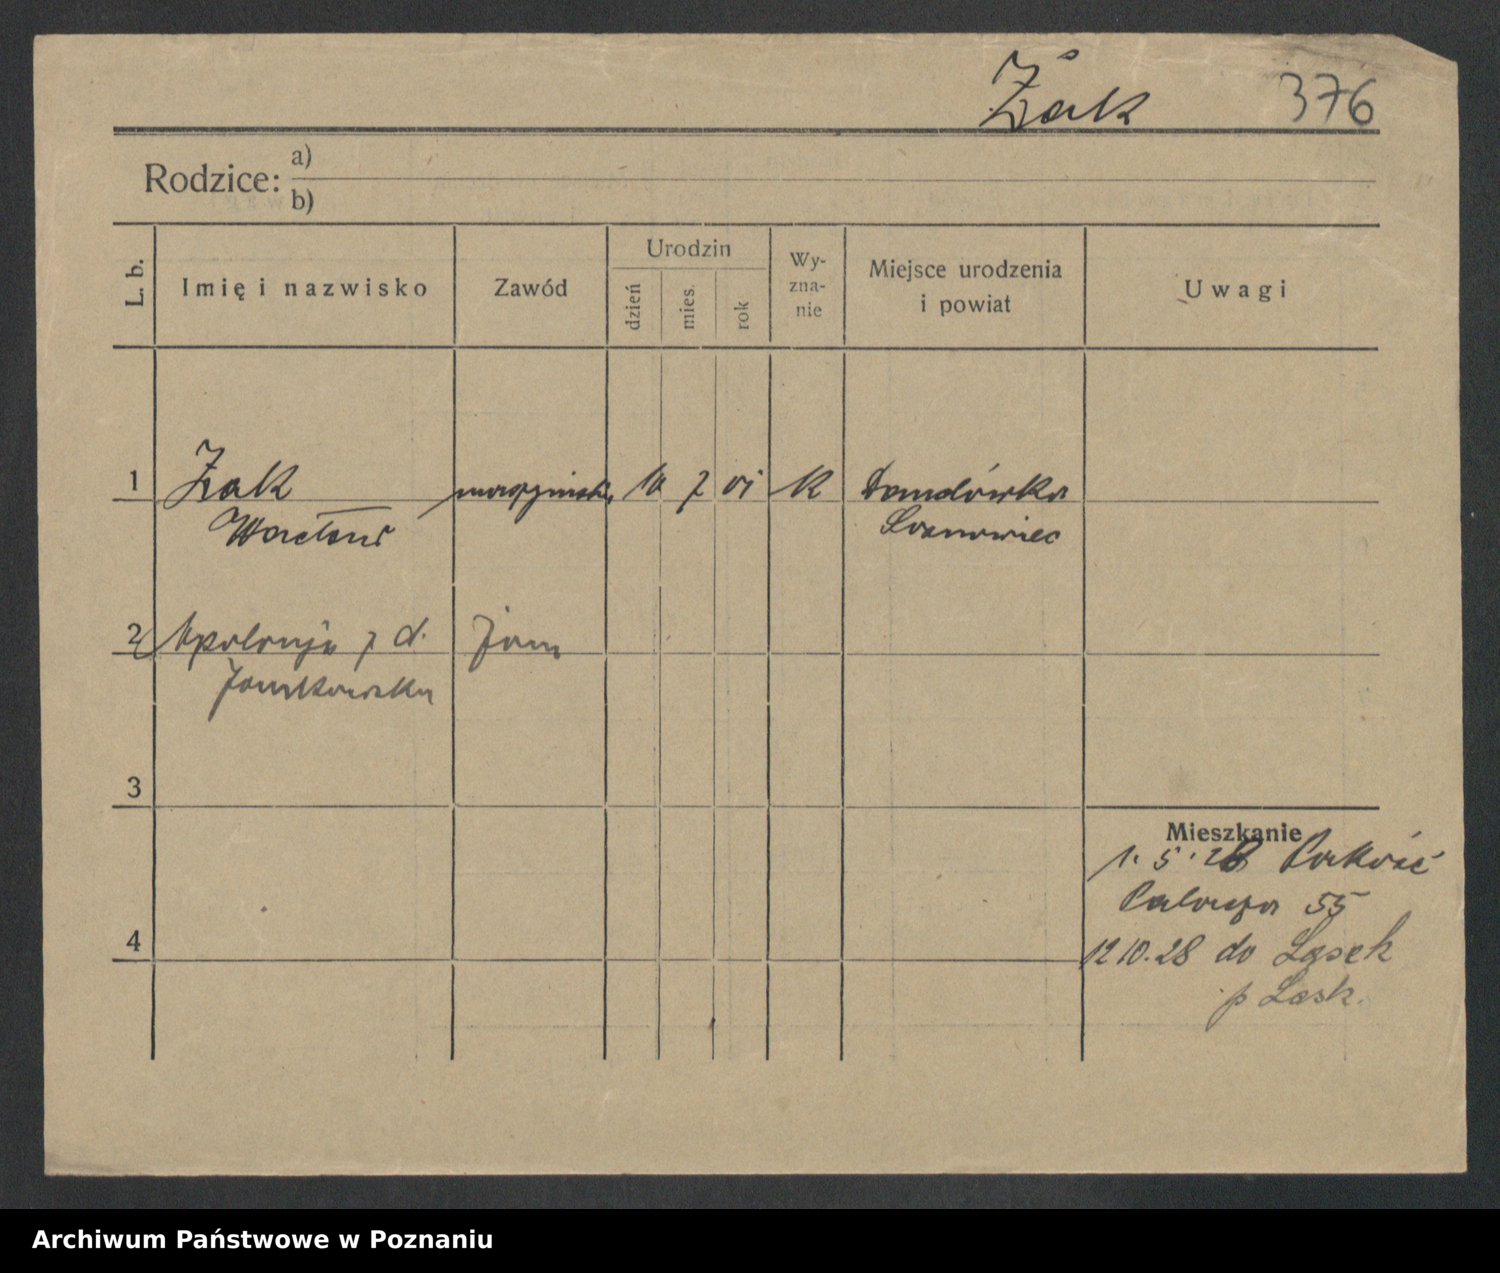 Żak 376
Rodzice: a)
b)
L. b. Imię i nazwisko Zawód Urodzin dzień mies. rok Wy-zna-nie Miejsce urodzenia i powiat Uwagi
1 Żak 10 7 01 K Dandówka
Wacław Sosnowiec
2 Apolonja z d. żona
Jankowska
3
Mieszkanie
1. 5. 28 Pakość
55
4
12 10. 28 do Lasek
p Lask.
Archiwum Państwowe w Poznaniu